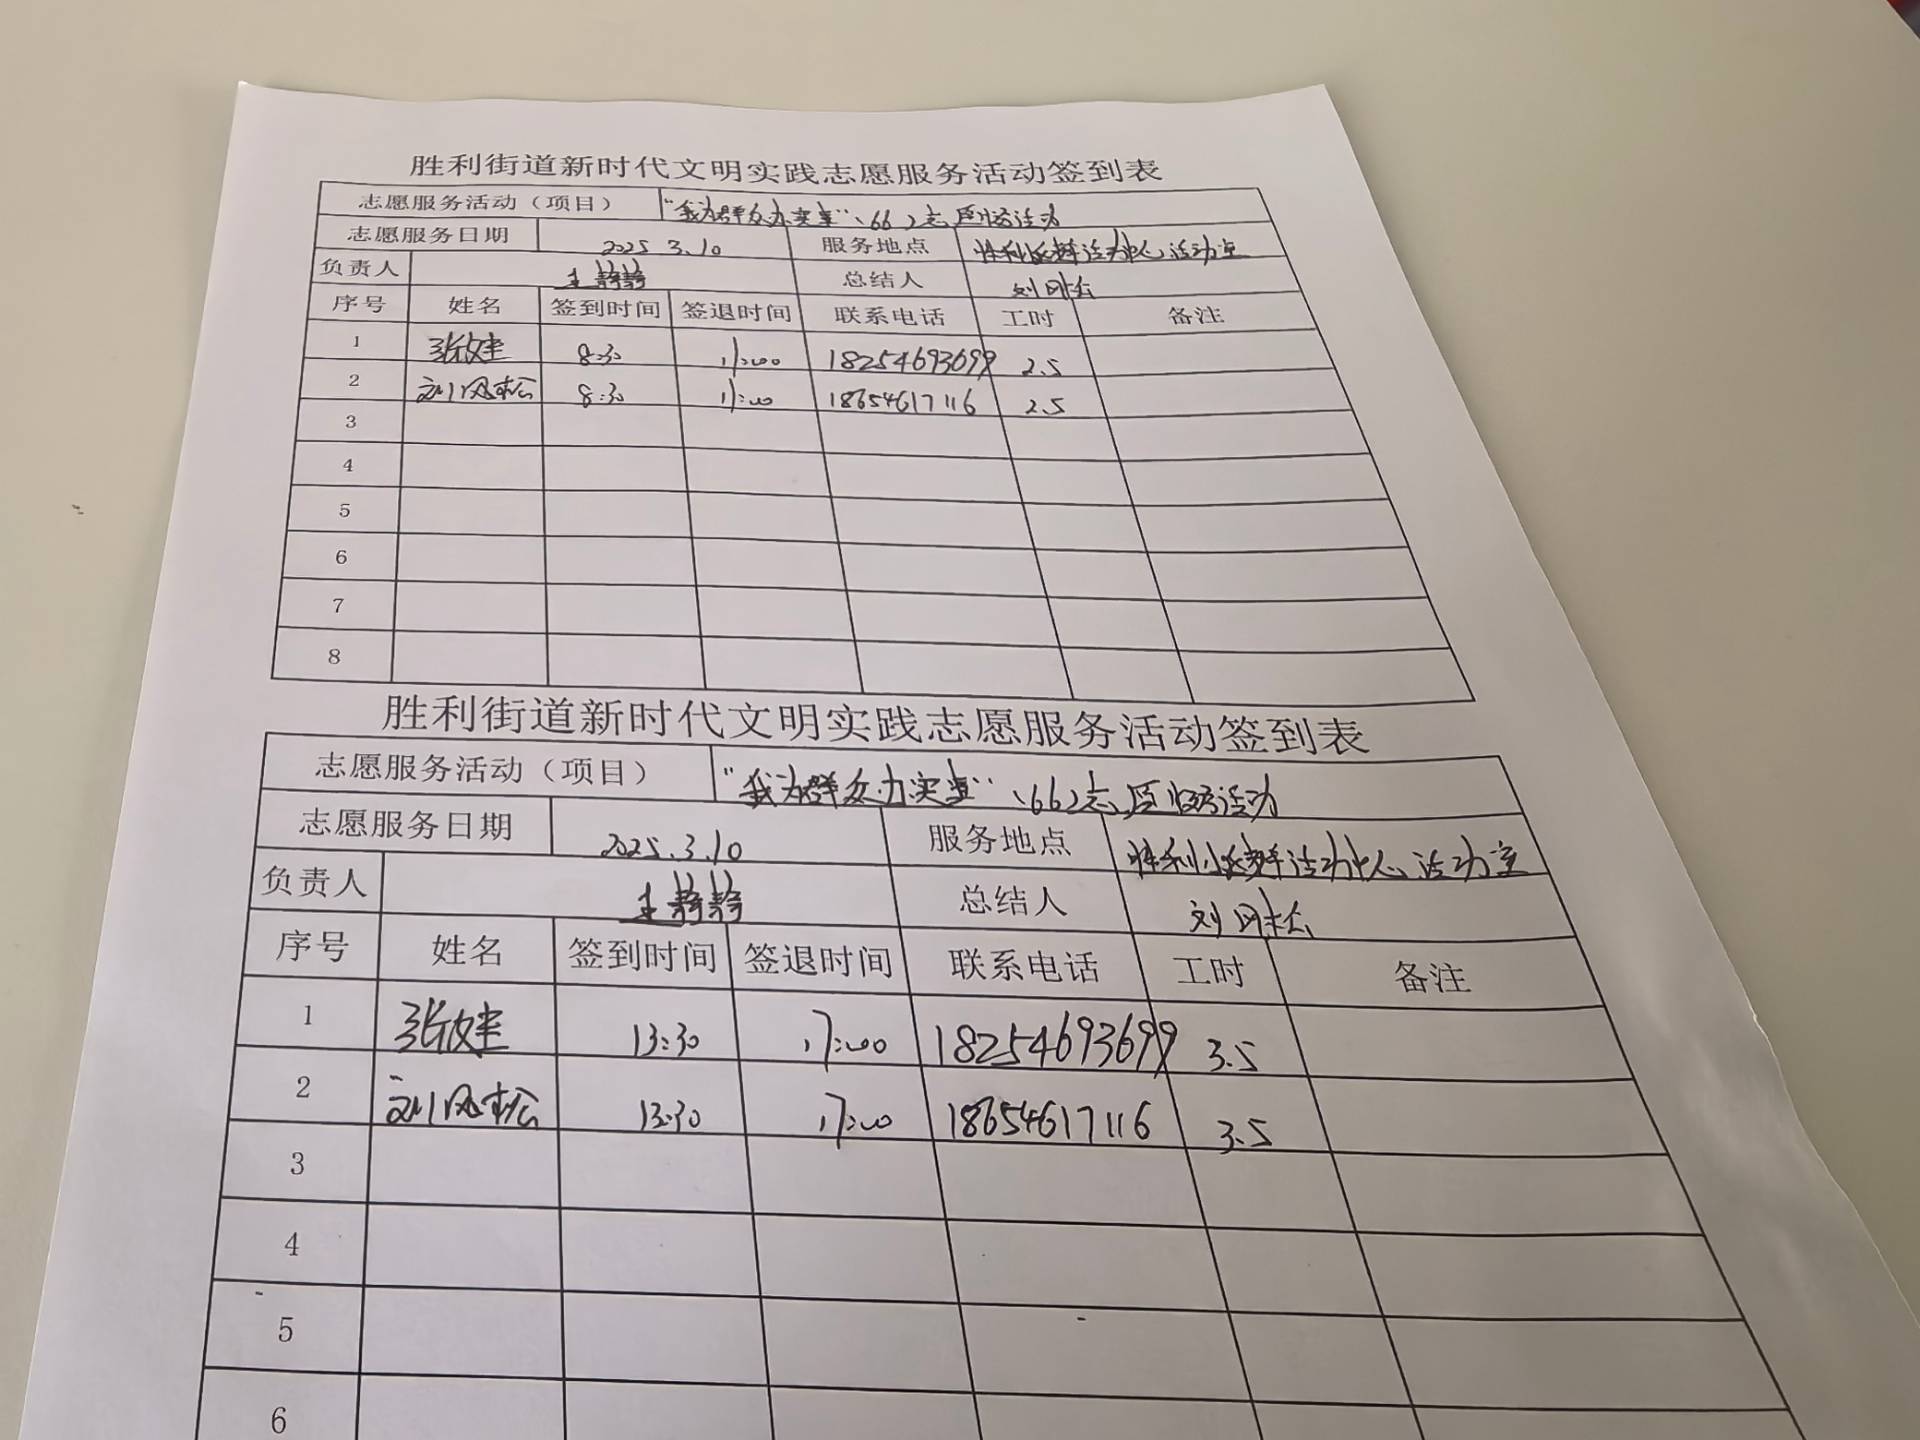 胜利街道新时代文明实践志愿服务活动签到表
志愿服务活动（项目） “我为群众办实事”、(66)志愿服务活动
志愿服务日期 2025.3.10 服务地点 胜利党群活动中心活动室
负责人 王静静 总结人 刘风松
序号 姓名 签到时间 签退时间 联系电话 工时 备注
1 张 8:30 11:00 18254693699 2.5
2 刘风松 8:30 11:00 18654617116 2.5
3
4
5
6
7
8
胜利街道新时代文明实践志愿服务活动签到表
志愿服务活动（项目） “我为群众办实事”、(66)志愿服务活动
志愿服务日期 2025.3.10 服务地点 胜利党群活动中心活动室
负责人 王静静 总结人 刘风松
序号 姓名 签到时间 签退时间 联系电话 工时 备注
1 张 13:30 17:00 18254693699 3.5
2 刘风松 13:30 17:00 18654617116 3.5
3
4
5
6